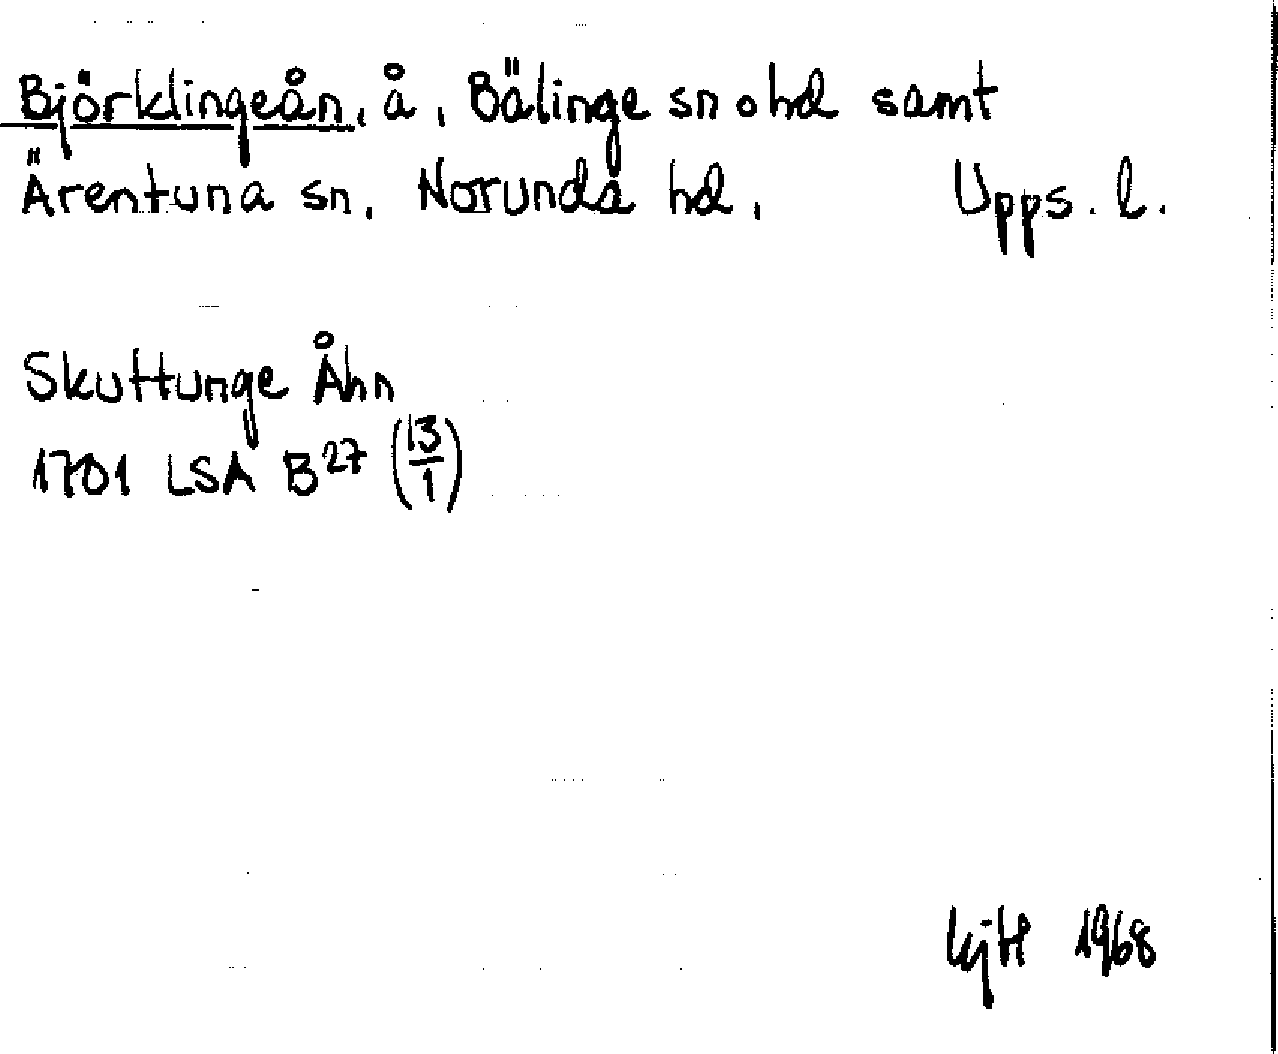 Björklingeån, å, Bälinge sn o hd samt
Ärentuna sn, Norunda hd, Upps. l.
Skuttunge Åhn
1701 LSA B²⁷ (13/1)
1968